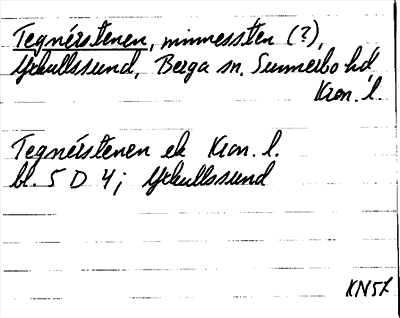 Tegnérstenen, minnessten (?),
Ykullssund, Berga sn. Sunnerbo hd,
Kron. l.
Tegnérstenen ek Kron. l.
bl. 5 D 4; Ykullssund
KN57